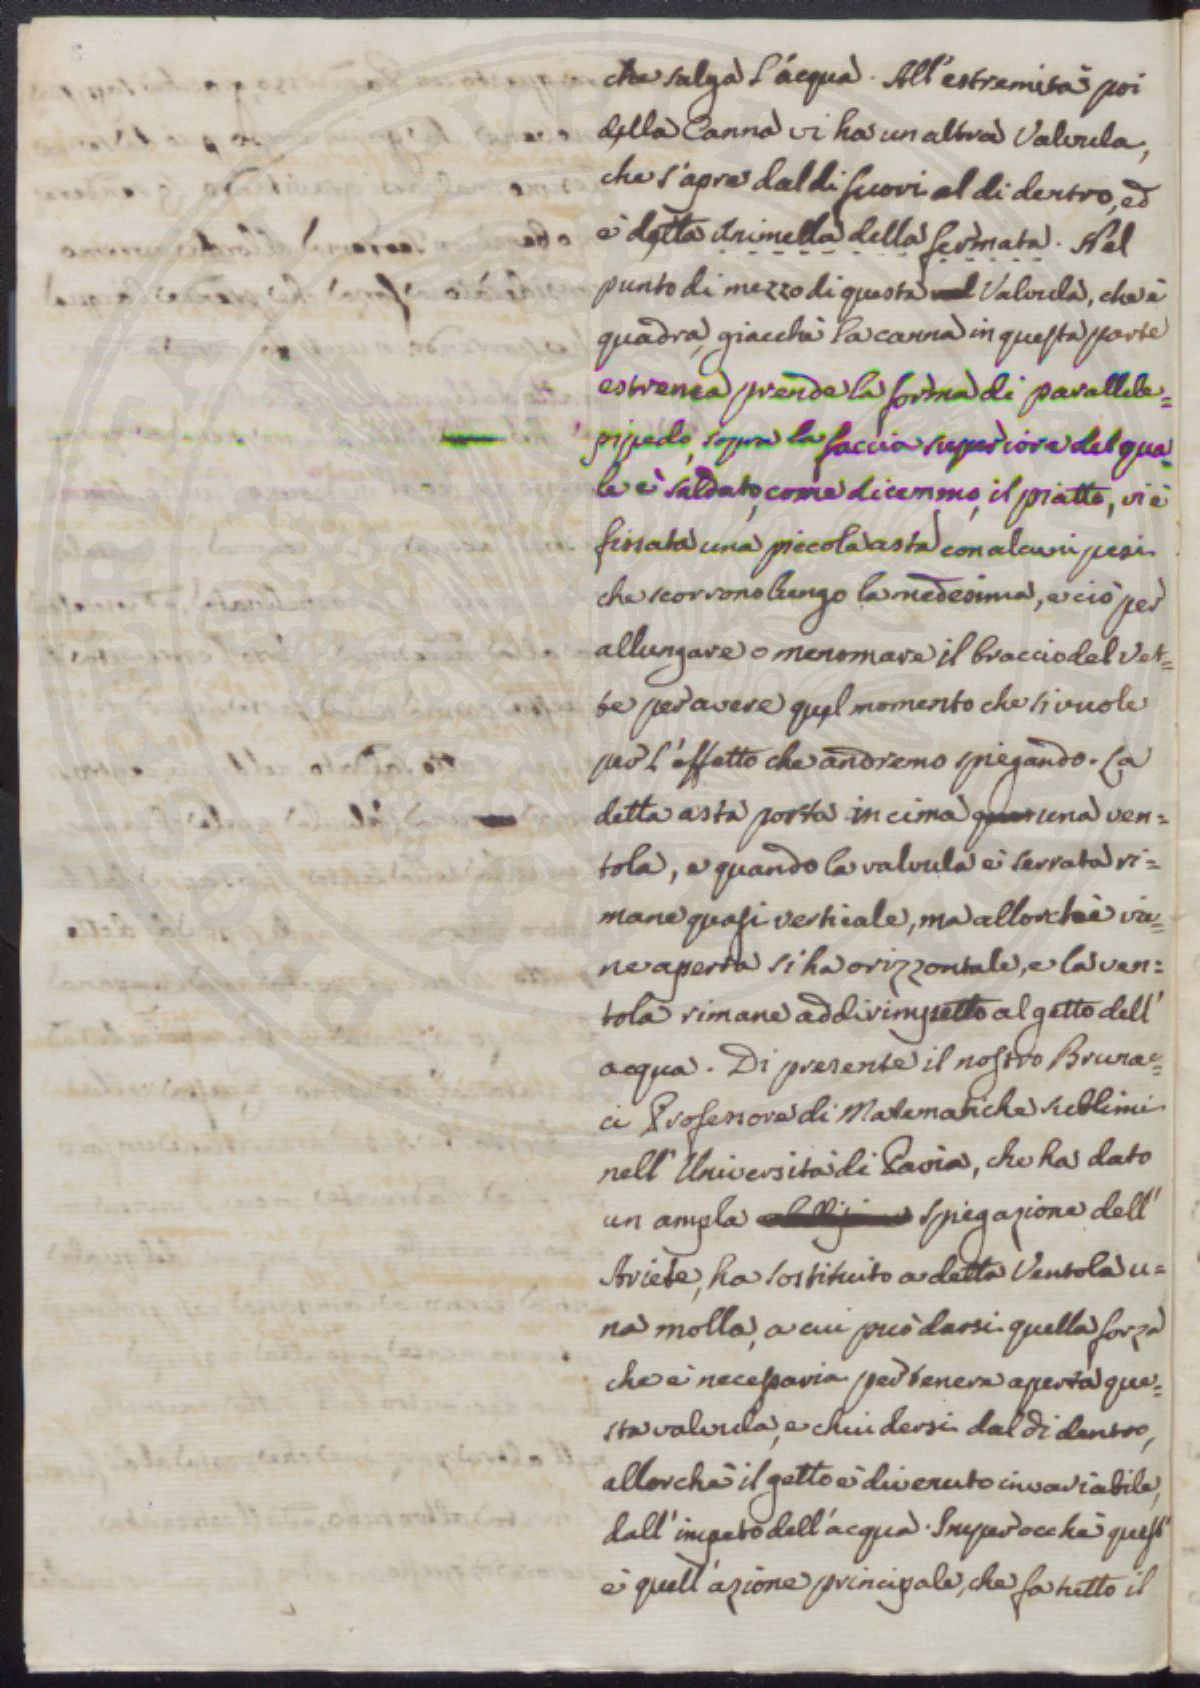 che salga l'acqua. All'estremità poi
della Canna vi ha un altra Valvula,
che s'apre dal di fuori al di dentro, ed
è detta Animella della fermata. Nel
punto di mezzo di questa Valvula, che è
quadra, giacchè la canna in questa parte
estrema prende la forma di parallele=
pipedo, sopra la faccia superiore del qua=
le è saldato, come dicemmo, il piatto, vi è
fissata una piccola asta con alcuni pesi
che scorrono lungo la medesima, e ciò per
allungare o menomare il braccio del Vet=
te per avere quel momento che si vuole
per l'effetto che andremo spiegando. La
detta asta porta in cima una ven=
tola, e quando la valvula è serrata ri=
mane quasi verticale, ma allorchè vie=
ne aperta si ha orizzontale, e la ven=
tola rimane addirimpetto al getto dell'
acqua. Di presente il nostro Brunac=
ci Professore di Matematiche sublimi
nell'Università di Pavia, che ha dato
un ampla spiegazione dell'
Ariete, ha sostituito a detta Ventola u=
na molla, a cui può darsi quella forza
che è necessaria per tenere aperta que=
sta valvula, e chiudersi dal di dentro,
allorchè il getto è divenuto invariabile,
dall'impeto dell'acqua. Imperocchè quest'
è quell'azione principale, che fa tutto il